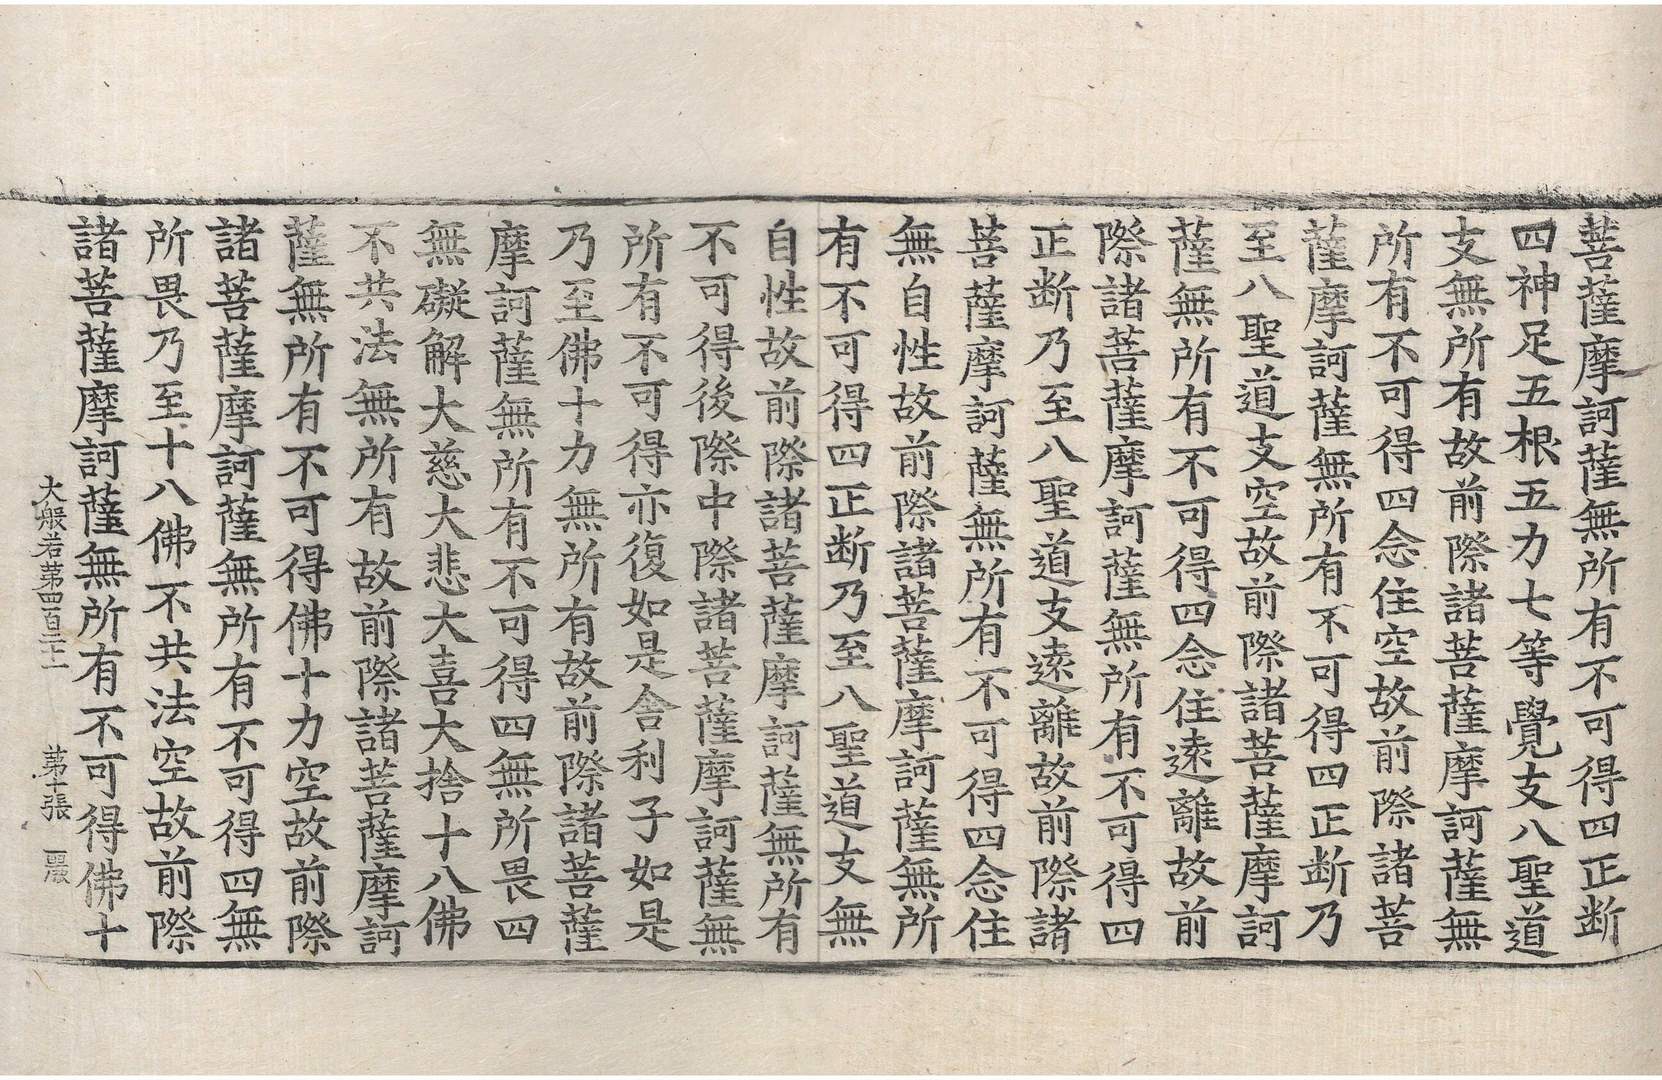 菩薩摩訶薩無所有不可得四正断
四神足五根五力七等覺支八聖道
支無所有故前際諸菩薩摩訶薩無
所有不可得四念住空故前際諸菩
薩摩訶薩無所有不可得四正断乃
至八聖道支空故前際諸菩薩摩訶
薩無所有不可得四念住遠離故前
際諸菩薩摩訶薩無所有不可得四
正断乃至八聖道支遠離故前際諸
菩薩摩訶薩無所有不可得四念住
無自性故前際諸菩薩摩訶薩無所
有不可得四正断乃至八聖道支無
自性故前際諸菩薩摩訶薩無所有
不可得後際中際諸菩薩摩訶薩無
所有不可得亦復如是舎利子如是
乃至佛十力無所有故前際諸菩薩
摩訶薩無所有不可得四無所畏四
無礙解大慈大悲大喜大捨十八佛
不共法無所有故前際諸菩薩摩訶
薩無所有不可得佛十力空故前際
諸菩薩摩訶薩無所有不可得四無
所畏乃至十八佛不共法空故前際
諸菩薩摩訶薩無所有不可得佛十
大般若苐四百二十一 苐十張